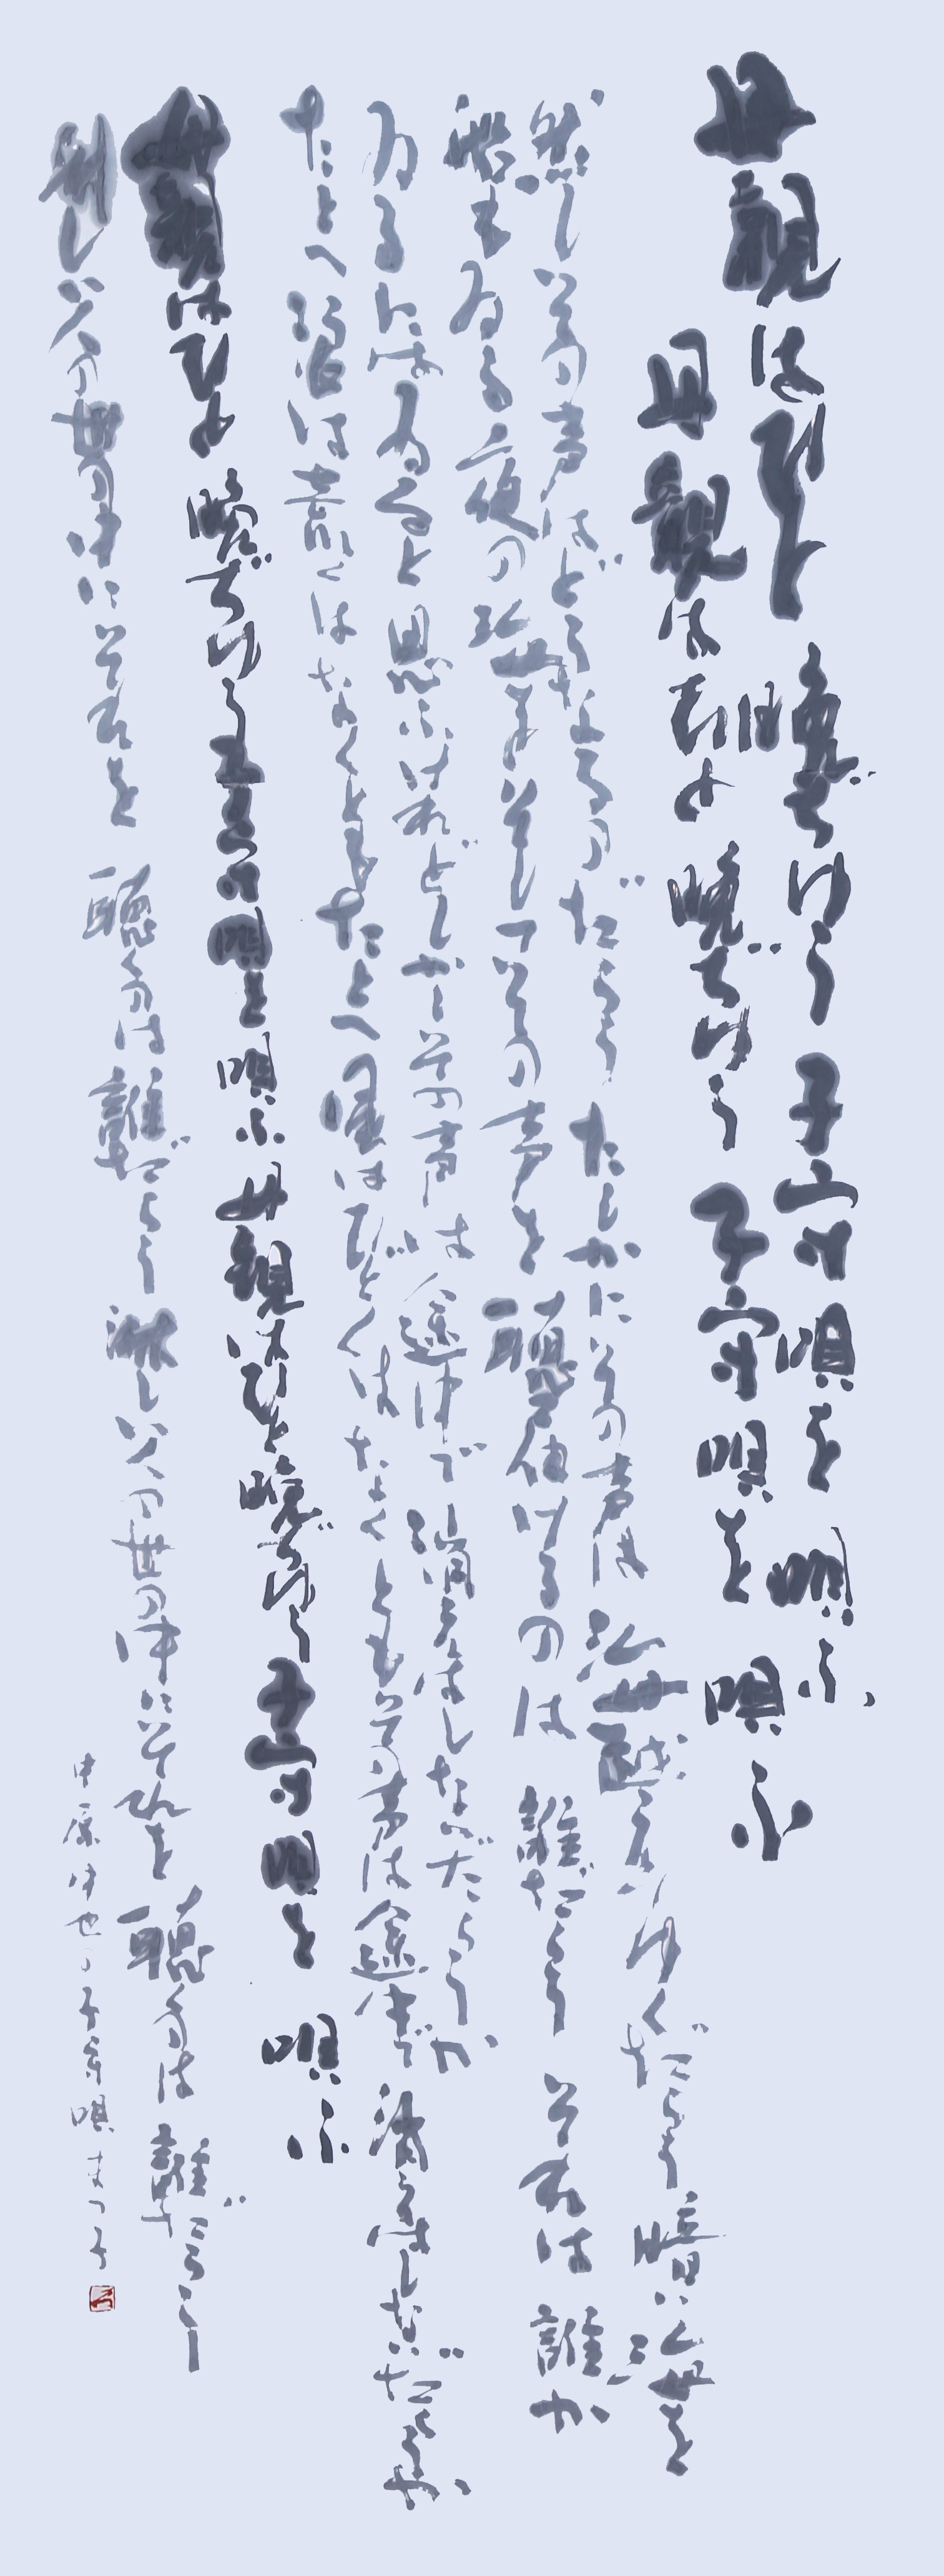 母親はひと晩ぢゆう子守唄を唄ふ
母親はひと晩ぢゆう子守唄を唄ふ
然しその声はどうなるのだらう たしかにその声は海越えてゆくだらう 暗い海を
船もゐる夜の海を そしてその声を聴届けるのは誰だらう それは誰か
ゐるにはゐると思ふけれどしかしその声は途中で消えはしないだらうか
たとへ浪は荒くはなくともたとへ風はひどくはなくともその声は途中で消えはしないだらうか
母親はひと晩ぢゆう子守唄を唄ふ 母親はひと晩ぢゆう子守唄を唄ふ
淋しい人の世の中にそれを聴くのは誰だらう 淋しい人の世の中にそれを聴くのは誰だらう
中原中也の子守唄 まつ子